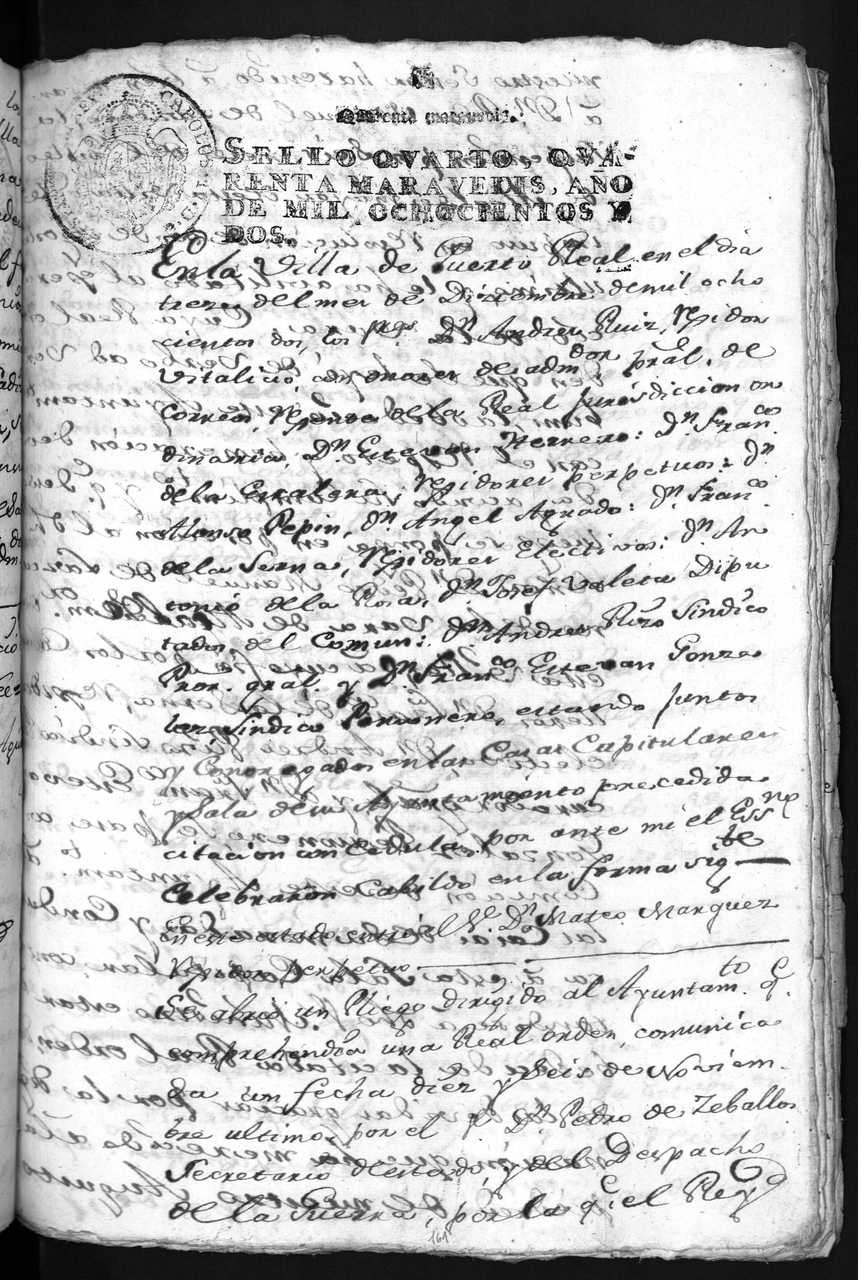 Quarenta maravedis.
SELLO QVARTO, QVA-
RENTA MARAVEDIS, AÑO
DE MIL OCHOCIENTOS Y
DOS.
CAROLUS
En la Villa de Puerto Real en el dia
treze del mes de Diziembre de mil ocho
cientos dos, los Sres. Dn. Andres Ruiz, Rexidor
Vitalicio, con honores de admdor. pral. de
Correos, Rexente de la Real Jurisdiccion or
dinaria, Dn. Estevan Herrero: Dn. Franco.
de la Escalera, Rexidores perpetuos: Dn.
Alonso Pepin, Dn. Angel Agrado: Dn. Franco.
de la Serna, Rexidores Electivos: Dn. An
tonio de la Rosa, Dn. Josef Valeta Dipu
tados del Comun: Dn. Andres Rizo Sindico
Pror. gral. y Dn. Franco. Estevan Gonza
lez Sindico Personero, estando juntos
y Congregados en las Casas Capitulares
y Sala de su Ayuntamiento precedida
citacion con Cedula, por ante mi el Essno.
Celebraron Cabildo en la forma sigte.
En este estado entró el Sr. Dn. Mateo Marquez
Rexidor perpetuo
Se abrió un Pliego dirigido al Ayuntamto. q.
comprehendia una Real orden, comunica
da con fecha diez y seis de Noviem
bre ultimo, por el Sr. Dn. Pedro de Zeballos
Secretario de estado, y del Despacho
de la Guerra, por la q. el Rey
161